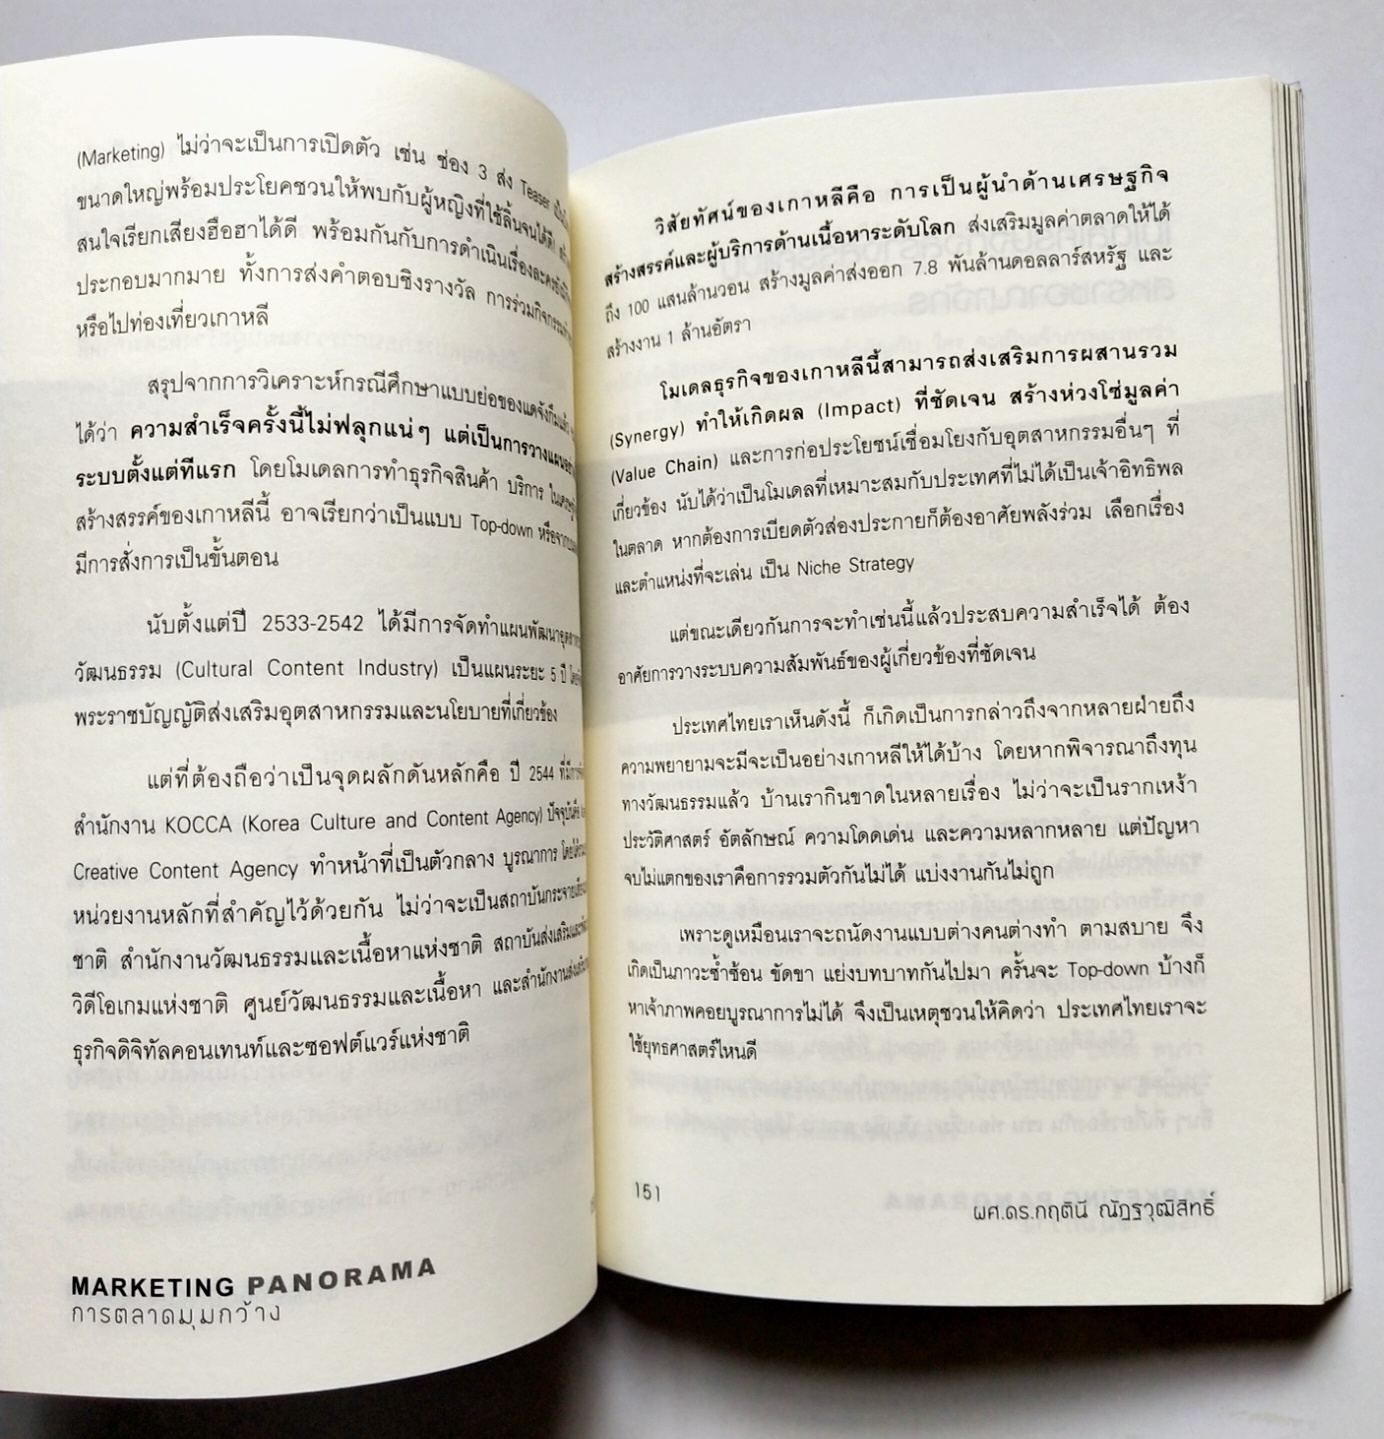 (Marketing) ไม่ว่าจะเป็นการเปิดตัว เช่น ช่อง 3 ส่ง Teaser
ขนาดใหญ่พร้อมประโยคชวนให้พบกับผู้หญิงที่ใช้ลิ้นจนได้ดี!
สนใจเรียกเสียงฮือฮาได้ดี พร้อมกันกับการดำเนินเรื่องละคร
ประกอบมากมาย ทั้งการส่งคำตอบชิงรางวัล การร่วมกิจกรรม
หรือไปท่องเที่ยวเกาหลี
สรุปจากการวิเคราะห์กรณีศึกษาแบบย่อของแดจังกึมแล้ว
ได้ว่า ความสำเร็จครั้งนี้ไม่ฟลุกแน่ๆ แต่เป็นการวางแผนอย่าง
ระบบตั้งแต่ทีแรก โดยโมเดลการทำธุรกิจสินค้า บริการ
สร้างสรรค์ของเกาหลีนี้ อาจเรียกว่าเป็นแบบ Top-down
มีการสั่งการเป็นขั้นตอน
นับตั้งแต่ปี 2533-2542 ได้มีการจัดทำแผนพัฒนา
วัฒนธรรม (Cultural Content Industry) เป็นแผนระยะ 5 ปี
พระราชบัญญัติส่งเสริมอุตสาหกรรมและนโยบายที่เกี่ยวข้อง
แต่ที่ต้องถือว่าเป็นจุดผลักดันหลักคือ ปี 2544
สำนักงาน KOCCA (Korea Culture and Content Agency)
Creative Content Agency ทำหน้าที่เป็นตัวกลาง บูรณาการ
หน่วยงานหลักที่สำคัญไว้ด้วยกัน ไม่ว่าจะเป็นสถาบันกระจายเสียง
ชาติ สำนักงานวัฒนธรรมและเนื้อหาแห่งชาติ
วิดีโอเกมแห่งชาติ ศูนย์วัฒนธรรมและเนื้อหา และสำนักงานส่งเสริม
ธุรกิจดิจิทัลคอนเทนท์และซอฟต์แวร์แห่งชาติ
MARKETING PANORAMA
การตลาดมุมกว้าง
วิสัยทัศน์ของเกาหลีคือ การเป็นผู้นำด้านเศรษฐกิจ
สร้างสรรค์และผู้บริการด้านเนื้อหาระดับโลก ส่งเสริมมูลค่าตลาดให้ได้
ถึง 100 แสนล้านวอน สร้างมูลค่าส่งออก 7.8 พันล้านดอลลาร์สหรัฐ และ
สร้างงาน 1 ล้านอัตรา
โมเดลธุรกิจของเกาหลีนี้สามารถส่งเสริมการผสานรวม
(Synergy) ทำให้เกิดผล (Impact) ที่ชัดเจน สร้างห่วงโซ่มูลค่า
(Value Chain) และการก่อประโยชน์เชื่อมโยงกับอุตสาหกรรมอื่นๆ ที่
เกี่ยวข้อง นับได้ว่าเป็นโมเดลที่เหมาะสมกับประเทศที่ไม่ได้เป็นเจ้าอิทธิพล
ในตลาด หากต้องการเบียดตัวส่องประกายก็ต้องอาศัยพลังร่วม เลือกเรื่อง
และตำแหน่งที่จะเล่น เป็น Niche Strategy
แต่ขณะเดียวกันการจะทำเช่นนี้แล้วประสบความสำเร็จได้ ต้อง
อาศัยการวางระบบความสัมพันธ์ของผู้เกี่ยวข้องที่ชัดเจน
ประเทศไทยเราเห็นดังนี้ ก็เกิดเป็นการกล่าวถึงจากหลายฝ่ายถึง
ความพยายามจะมีจะเป็นอย่างเกาหลีให้ได้บ้าง โดยหากพิจารณาถึงทุน
ทางวัฒนธรรมแล้ว บ้านเรากินขาดในหลายเรื่อง ไม่ว่าจะเป็นรากเหง้า
ประวัติศาสตร์ อัตลักษณ์ ความโดดเด่น และความหลากหลาย แต่ปัญหา
จบไม่แตกของเราคือการรวมตัวกันไม่ได้ แบ่งงานกันไม่ถูก
เพราะดูเหมือนเราจะถนัดงานแบบต่างคนต่างทำ ตามสบาย จึง
เกิดเป็นภาวะซ้ำซ้อน ขัดขา แย่งบทบาทกันไปมา ครั้นจะ Top-down บ้างก็
หาเจ้าภาพคอยบูรณาการไม่ได้ จึงเป็นเหตุชวนให้คิดว่า ประเทศไทยเราจะ
ใช้ยุทธศาสตร์ไหนดี
151
ผศ.ดร.กฤตินี ณัฏฐวุฒิสิทธิ์